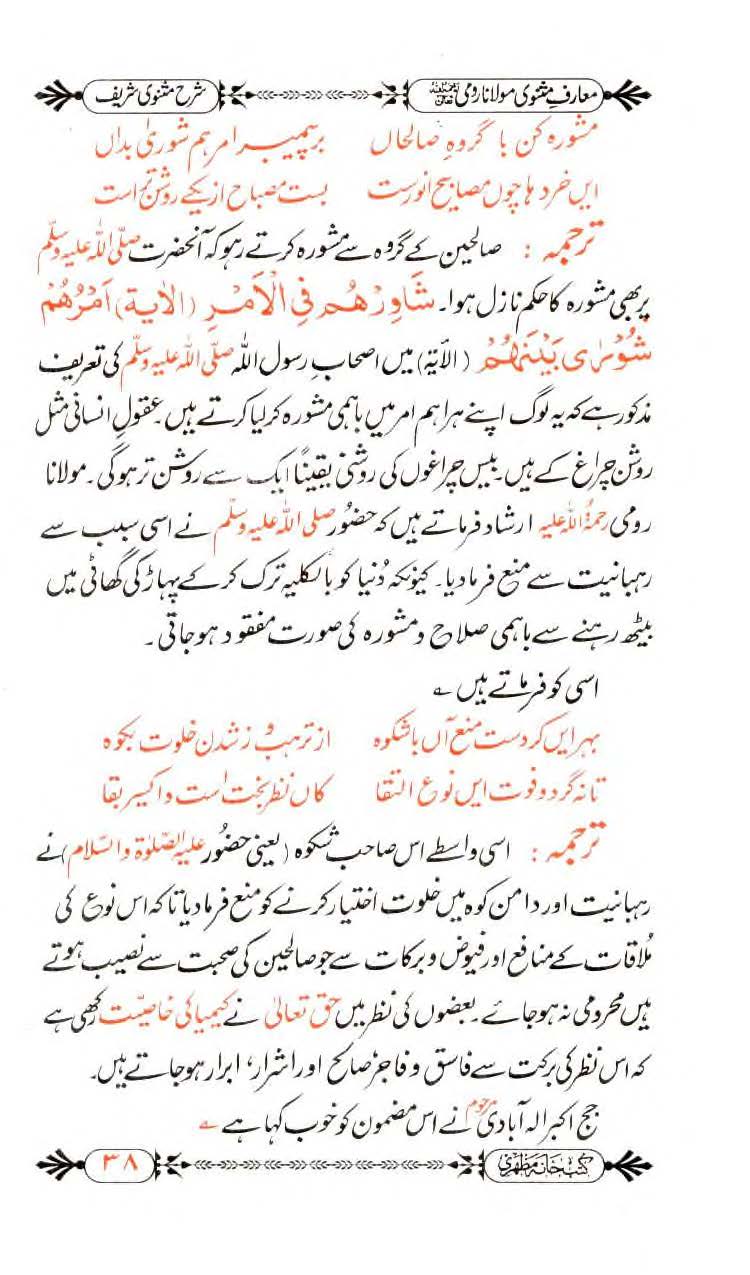 معارفِ مثنوی مولانا رومی رحمہ اللہ تعالیٰ شرح مثنوی شریف
مشورہ کن با گروہِ صالحاں برپیمبر امرهم شوریٰ بداں
ایں خرد ہا چوں مصابیح انورست بست مصباح از یکے روشن تر است
ترجمہ : صالحین کے گروہ سے مشورہ کرتے رہو کہ آنحضرت صلّی اللہ علیہ وسلّم
پر بھی مشورہ کا حکم نازل ہوا۔ شَاوِرْهُمْ فِي الْاَمْرِ (الاٰية) اَمْرُهُمْ
شُوْرٰى بَيْنَهُمْ (الأیۃ) میں اصحابِ رسول اللہ صلّی اللہ علیہ وسلّم کی تعریف
مذکور ہے کہ یہ لوگ اپنے ہر اہم امر میں باہمی مشورہ کر لیا کرتے ہیں۔ عقولِ انسانی مثل
روشن چراغ کے ہیں۔ بیس چراغوں کی روشنی یقیناً ایک سے روشن تر ہوگی۔ مولانا
رومی رحمۃُ اللہ علیہ ارشاد فرماتے ہیں کہ حضُور صلی اللہ علیہ وسلّم نے اسی سبب سے
رہبانیت سے منع فرمادیا۔ کیونکہ دُنیا کو بالکلیہ ترک کرکے پہاڑ کی گھاٹی میں
بیٹھ رہنے سے باہمی صلاح ومشورہ کی صورت مفقود ہوجاتی۔
اسی کو فرماتے ہیں ؎
بہر ایں کردست منع آں باشکوہ از ترہب وز شدن خلوت بکوہ
تا نہ گردد فوت ایں نوع التقا کاں نظر بخت است واکسیر بقا
ترجمہ : اسی واسطے اس صاحب شکوہ (یعنی حضُور علیہ الصّلوٰۃ والسّلام) نے
رہبانیت اور دامن کوہ میں خلوت اختیار کرنے کو منع فرمادیا تاکہ اس نوع کی
مُلاقات کے منافع اور فیوض وبرکات سے جو صالحین کی صحبت سے نصیب ہوتے
ہیں محرومی نہ ہوجائے۔ بعضوں کی نظر میں حق تعالیٰ نے کیمیا کی خاصیّت رکھی ہے
کہ اس نظر کی برکت سے فاسق وفاجر صالح اور اشرار، ابرار ہوجاتے ہیں۔
جج اکبر الہ آبادی مرحوم نے اس مضمون کو خوب کہا ہے ؎
کتب خانہ مظہری ۳۸